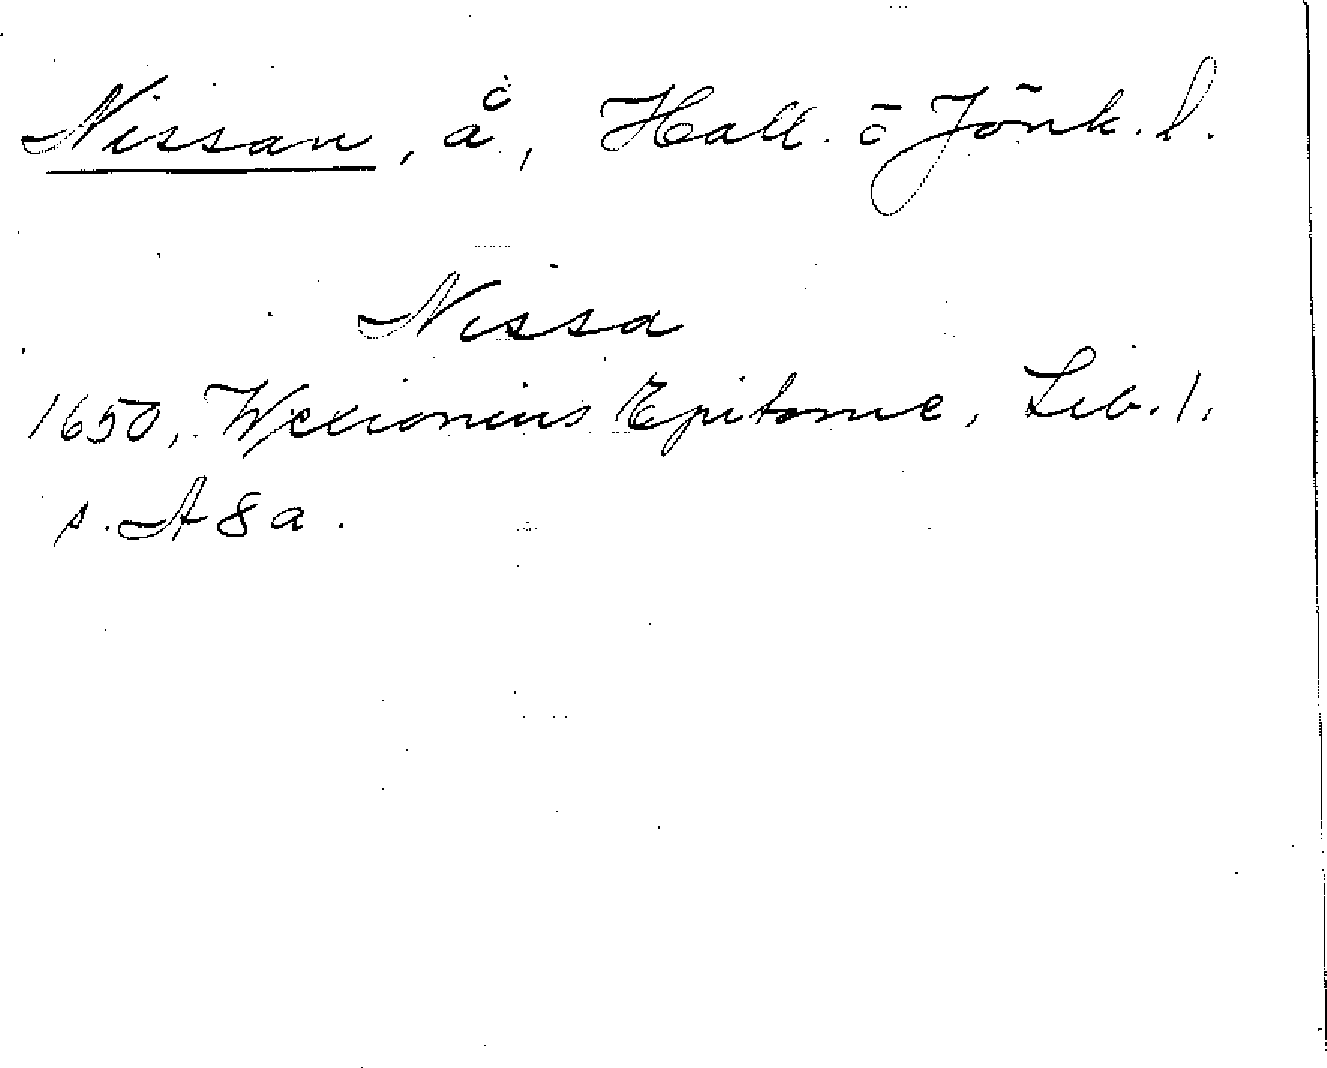 Nissan, å, Hall. o Jönk. l.
Nissa
1650, Wexionius Epitome, Lib. 1.
s. A 8 a.